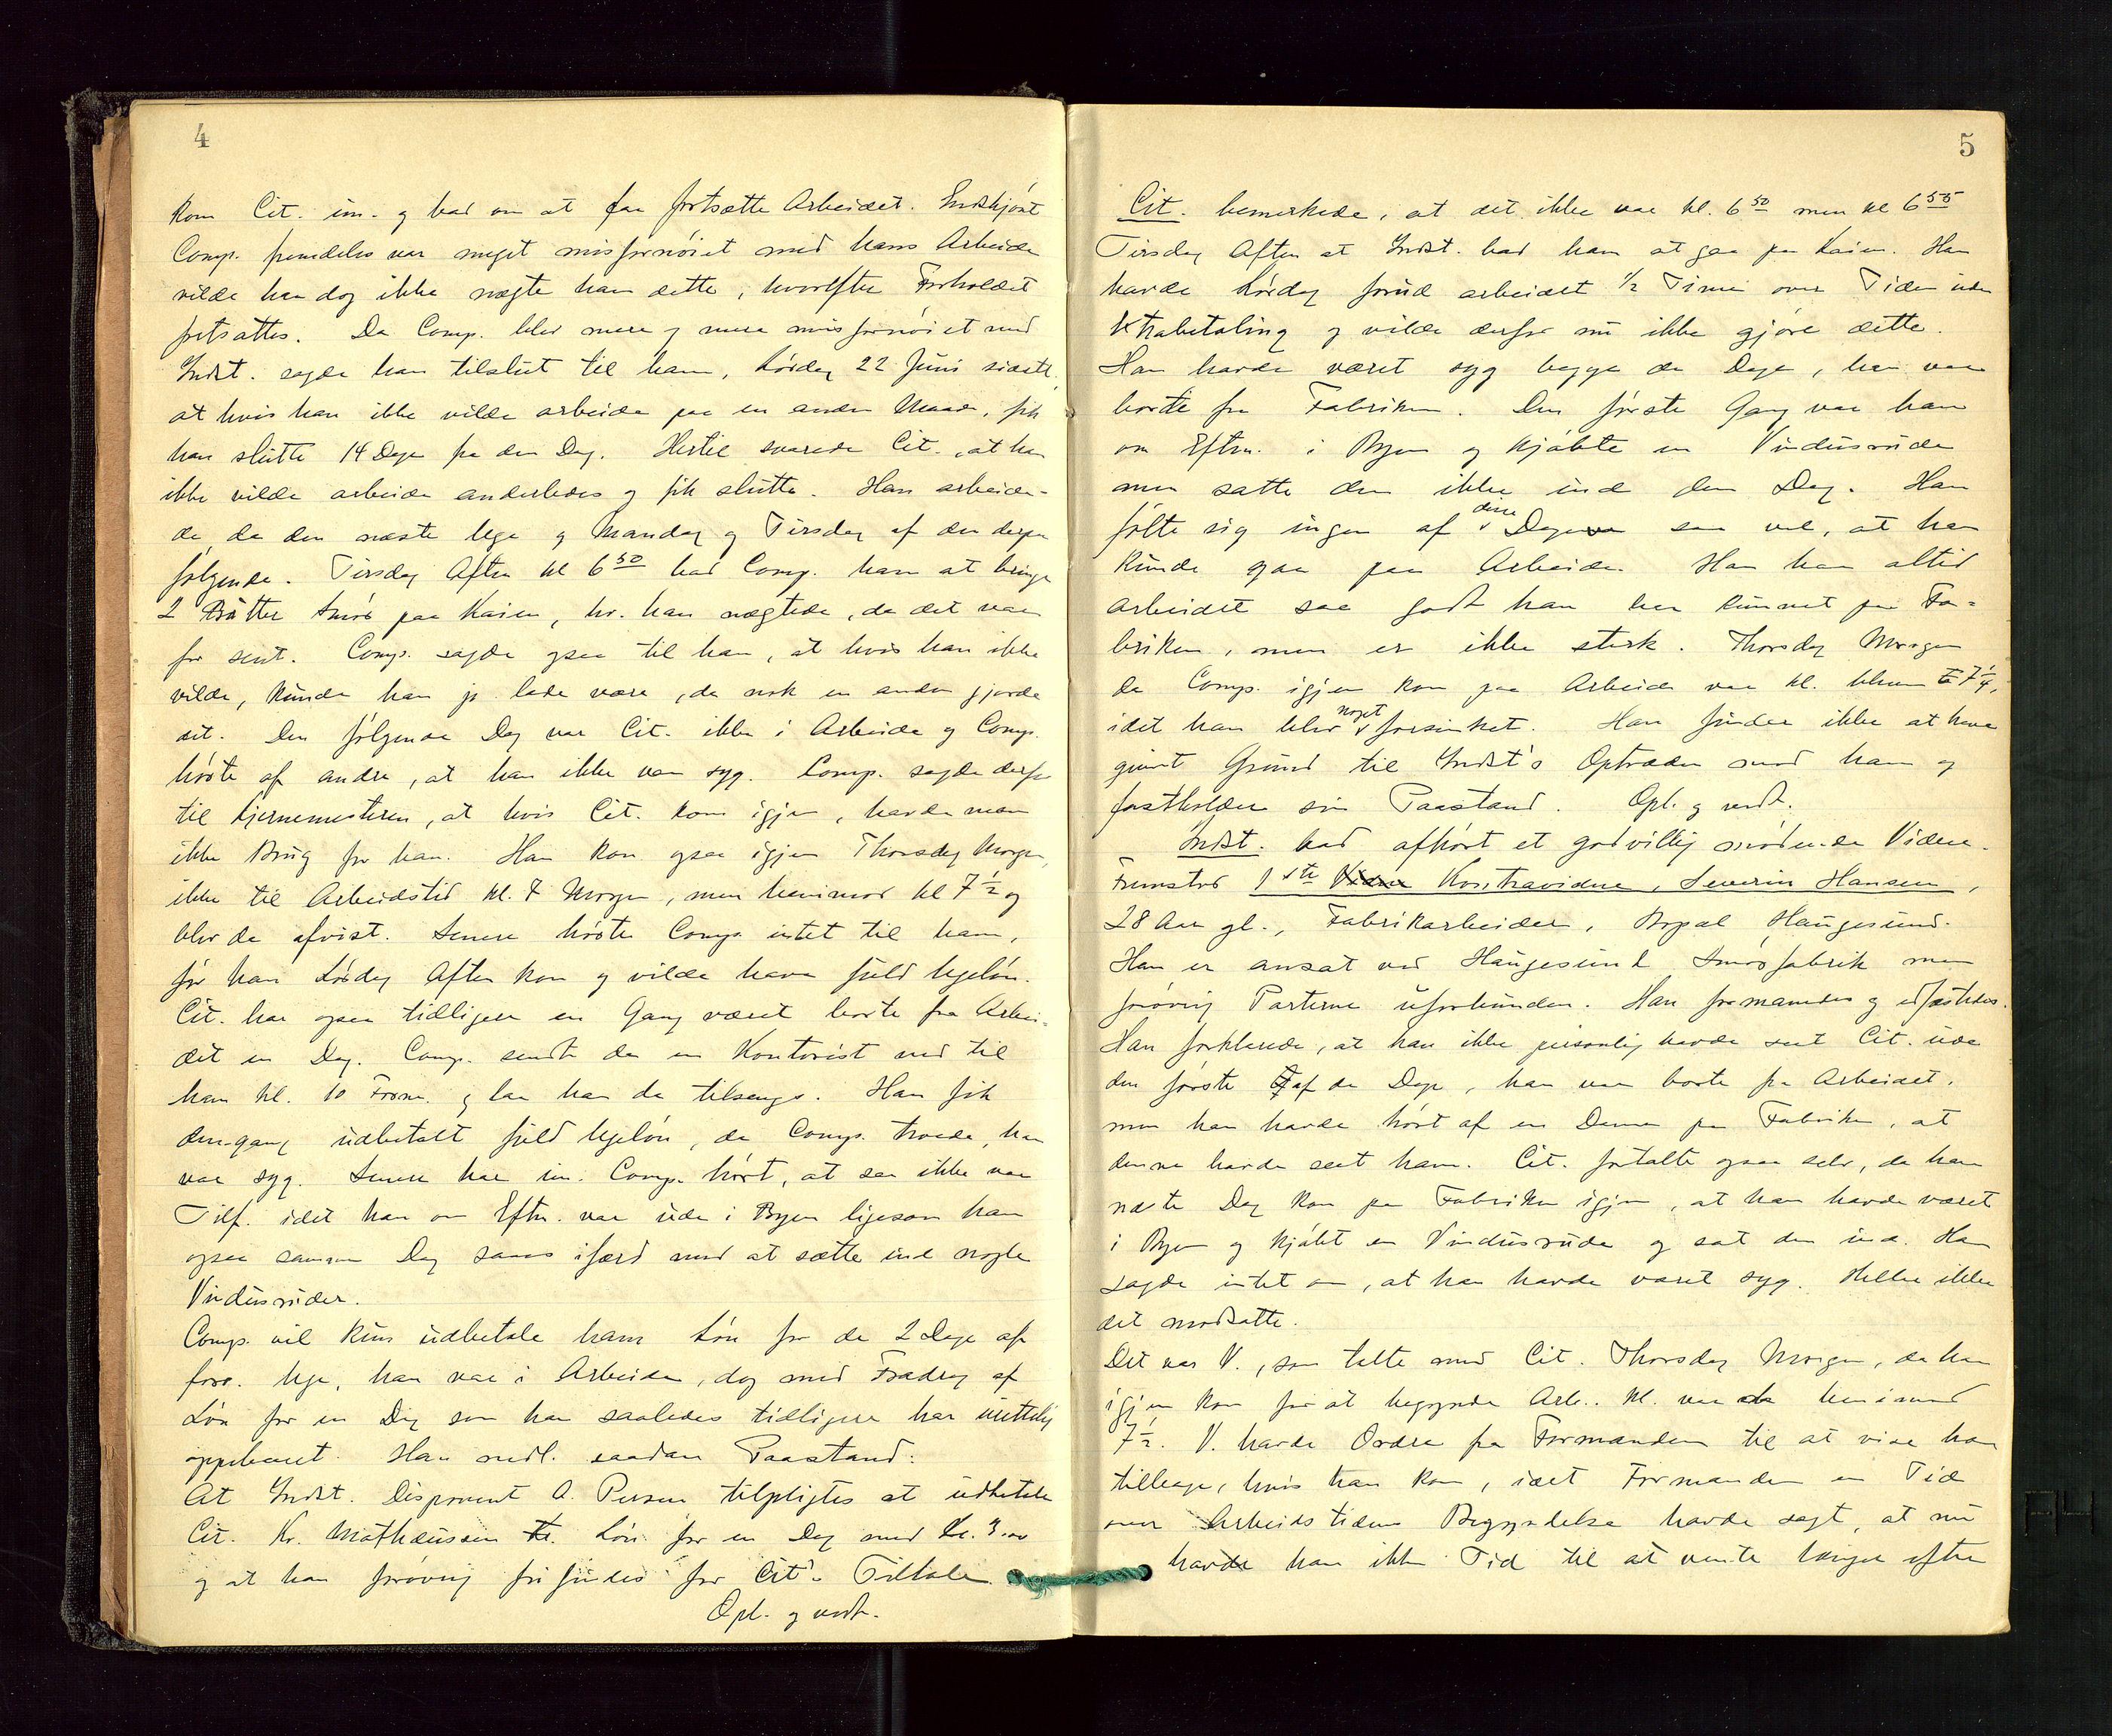 4
kom Cit. im. og bad om at faa fortsætte Arbeidet. Endskjönt
Comp. fremdeles var meget misfornöiet med hans Arbeide
vilde han dog ikke nægte ham dette, hvorefter Forholdet
fortsattes. Da Comp. blev mere og mere misfornöiet med
Indst. sagde han tilslut til ham, Lördag 22 Juni sidstl.
at hvis han ikke vilde arbeide paa en anden Maade, fik
han slutte 14 Dage fra den Dag. Hertil svarede Cit., at han
ikke vilde arbeide anderledes og fik slutte. Han arbeide-
de da den næste Uge og Mandag og Tirsdag af den derpaa
fölgende. Tirsdag Aften kl 6 50 bad Comp. ham at bringe
2 Bötter Smör paa Kaien, hv. han nægtede, da det var
for sent. Comp. sagde ogsaa til ham, at hvis han ikke
vilde, kunde han jo lade være, da nok en anden gjorde
det. Den fölgende Dag var Cit. ikke i Arbeide og Comp.
hörte af andre, at han ikke var syg. Comp. sagde derfor
til Kjernemesteren, at hvis Cit. kom igjen, havde man
ikke Brug for ham. Han kom ogsaa igjen Thorsdag Morgen,
ikke til Arbeidstid kl. 7 Morgen, men henimod kl 7 1/2 og
blev da afvist. Senere hörte Comp. intet til ham,
för han Lördag Aften kom og vilde have fuld Ugelön.
Cit. har ogsaa tidligere en Gang været borte fra Arbei-
det en Dag. Comp. sendte da en Kontorist ned til
ham kl. 10 Form. og laa han da tilsengs. Han fik
dengang udbetalt fuld Ugelön, da Comp. troede, han
var syg. Senere har im. Comp. hört, at saa ikke var
Tilf. idet han om Eftm. var ude i Byen ligesom han
ogsaa samme Dag saaes ifærd med at sætte ind nogle
Vindusruder.
Comp. vil kun udbetale ham Lön for de 2 Dage af
forr. Uge, han var i Arbeide, dog med Fradrag af
Lön for en Dag som han saaledes tidligere har urettelig
oppebaaret. Han nedl. saadan Paastand:
At Indst. Disponent A. Persen tilpligtes at udbetale
Cit. Kr. Mathæussen Lön for en Dag med Kr. 3.00
og at han forövrig frifindes for Cit's Tiltale.
Opl. og vedt.
5
Cit. bemerkede, at det ikke var kl. 6 50 men kl 6 55
Tirsdag Aften at Indst. bad ham at gaa paa Kaien. Han
havde Lördag forud arbeidet 1/2 Time over Tiden uden
Xtrabetaling og vilde derfor nu ikke gjöre dette.
Han havde været syg begge de Dage, han var
borte fra Fabriken. Den förste Gang var han
om Eftm. i Byen og kjöbte en Vindusrude
men satte den ikke ind den Dag. Han
fölte sig ingen af disse Dage saa vel, at han
kunde gaa paa Arbeide. Han har altid
arbeidet saa godt han har kunnet paa Fa-
briken, men er ikke sterk. Thorsdag Morgen
da Comp. igjen kom paa Arbeide var kl. bleven 7 1/4,
idet han blev noget forsinket. Han finder ikke at have
givet Grund til Indst's Optræden mod ham og
fastholder sin Paastand. Opl. og vedt.
Indst. bad afhört et godvillig mödende Vidne.
Fremstod 1ste Kontravidne, Severin Hansen,
28 Aar gl., Fabrikarbeider, Bopæl Haugesund.
Han er ansat ved Haugesund Smörfabrik men
forövrig Parterne uforbunden. Han formanedes og edfæstedes.
Han forklarede, at han ikke personlig havde seet Cit. ude
den förste af de Dage, han var borte fra Arbeidet,
men han havde hört af en Dame paa Fabriken, at
denne havde seet ham. Cit. fortalte ogsaa selv, da han
næste Dag kom paa Fabriken igjen, at han havde været
i Byen og kjöbt en Vindusrude og sat den ind. Han
sagde intet om, at han havde været syg. Heller ikke
det modsatte.
Det var V., som talte med Cit. Thorsdag Morgen, da han
igjen kom for at begynde Arb.. Kl. var henimod
7 1/2. V. havde Ordre fra Formanden til at vise ham
tilbage, hvis han kom, idet Formanden en Tid
over Arbeidstidens Begyndelse havde sagt, at nu
havde han ikke Tid til at vente længer efter